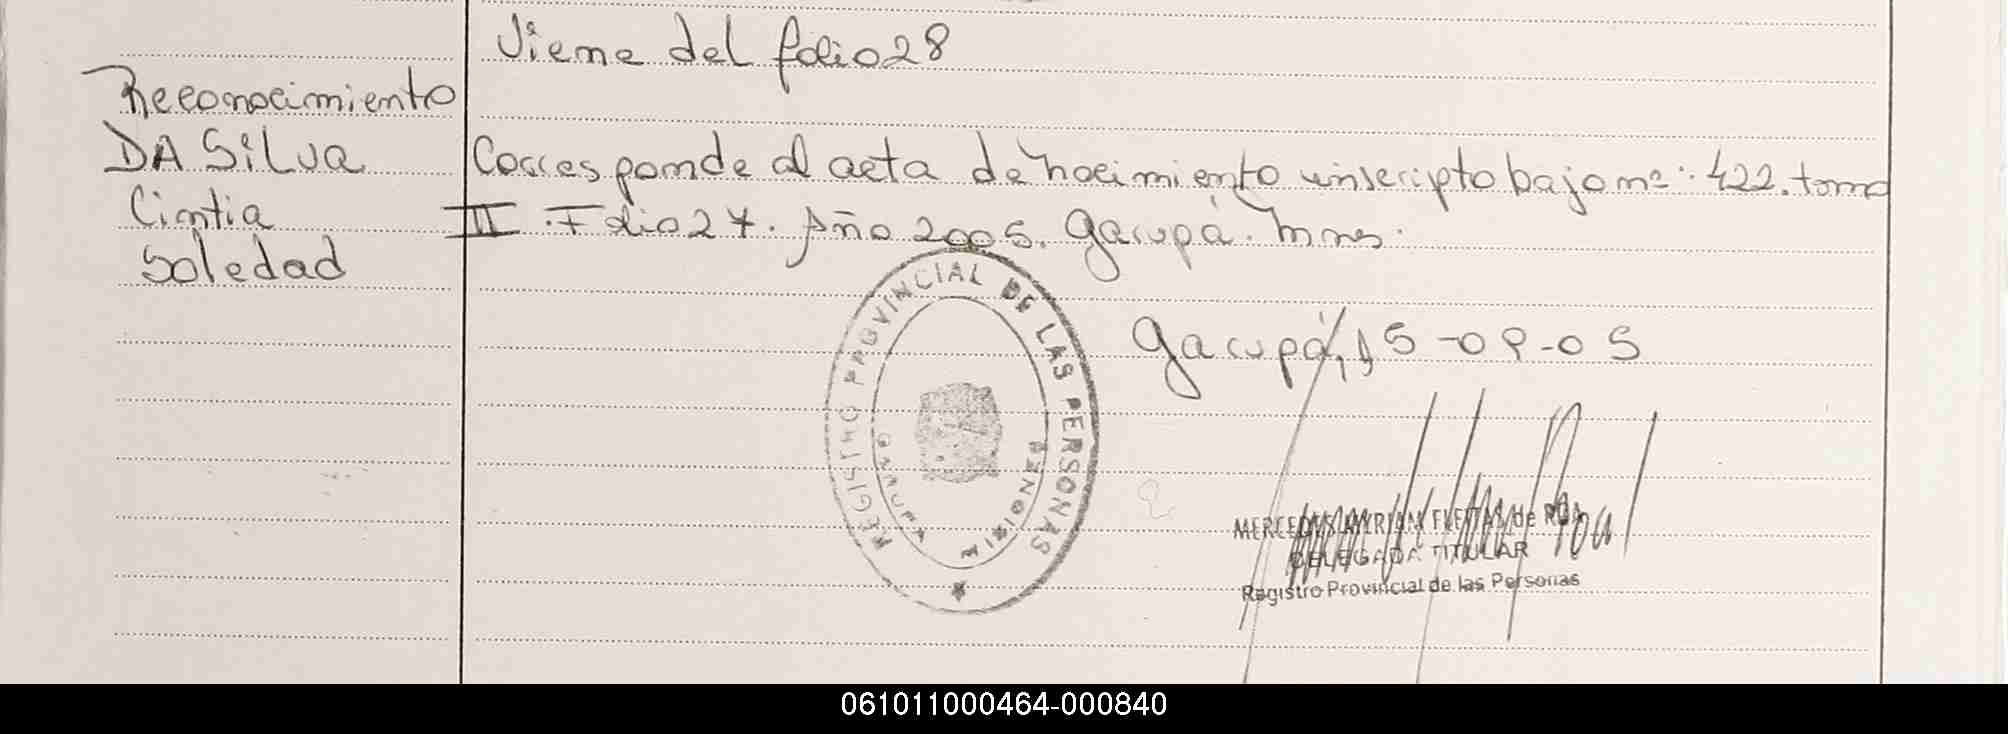 Viene del folio 28
Reconocimiento
DA Silva
Cintia
Soledad
Corresponde al acta de nacimiento inscripto bajo nº: 422. tomo
II. Folio 27. Año 2005. Garupá. Mnes.
REGISTRO PROVINCIAL DE LAS PERSONAS
GARUPA MISIONES
Garupá, 15-09-05
MERCEDES MYRIAN FLEITAS de ROA
DELEGADA TITULAR
Registro Provincial de las Personas
061011000464-000840